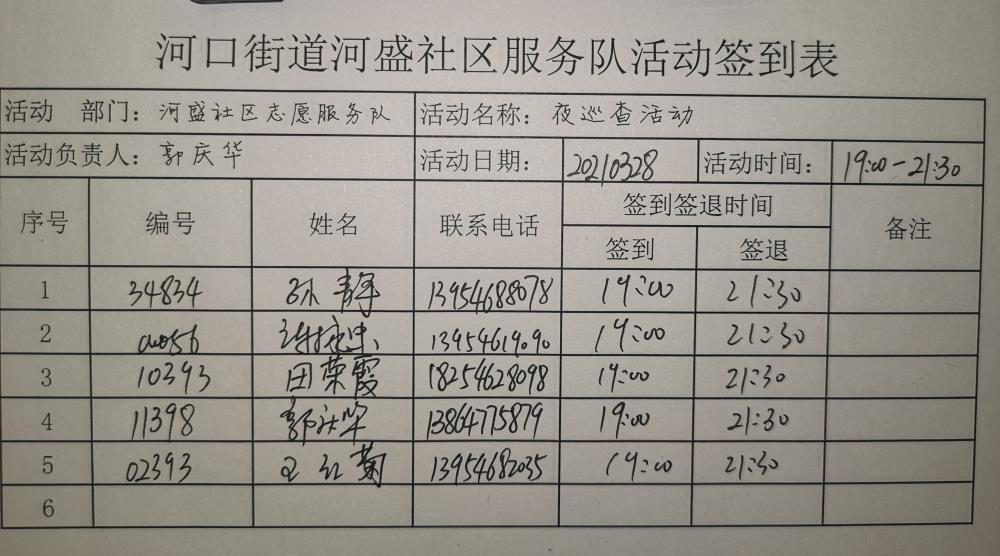 河口街道河盛社区服务队活动签到表
活动 部门：河盛社区志愿服务队 活动名称：夜巡查活动
活动负责人：郭庆华 活动日期：20210328 活动时间：19:00-21:30
序号 编号 姓名 联系电话 签到签退时间 备注
签到 签退
1 34834 孙青军 13954688078 19:00 21:30
2 13954619090 19:00 21:30
3 10393 田荣霞 18254628098 19:00 21:30
4 11398 郭庆华 13864775879 19:00 21:30
5 02393 王红菊 13954682035 19:00 21:30
6